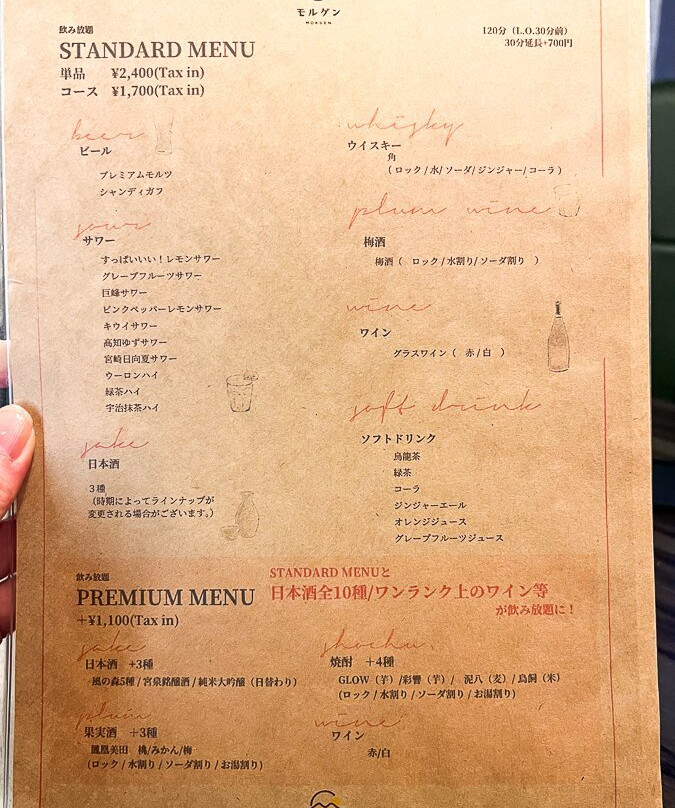 モルゲン
MORGEN
飲み放題
STANDARD MENU
単品 ¥2,400(Tax in)
コース ¥1,700(Tax in)
120分（L.O.30分前）
30分延長+700円
beer
ビール
プレミアムモルツ
シャンディガフ
sour
サワー
すっぱいいい！レモンサワー
グレープフルーツサワー
巨峰サワー
ピンクペッパーレモンサワー
キウイサワー
高知ゆずサワー
宮崎日向夏サワー
ウーロンハイ
緑茶ハイ
宇治抹茶ハイ
sake
日本酒
3種
（時期によってラインナップが
変更される場合がございます。）
whisky
ウイスキー
角
（ロック / 水/ ソーダ/ ジンジャー/ コーラ ）
plum wine
梅酒
梅酒（ ロック / 水割り/ ソーダ割り ）
wine
ワイン
グラスワイン（ 赤 / 白 ）
soft drink
ソフトドリンク
烏龍茶
緑茶
コーラ
ジンジャーエール
オレンジジュース
グレープフルーツジュース
飲み放題
PREMIUM MENU
+¥1,100(Tax in)
STANDARD MENUと
日本酒全10種/ワンランク上のワイン等
が飲み放題に！
sake
日本酒 +3種
風の森5種 / 宮泉銘醸酒 / 純米大吟醸（日替わり）
plum
果実酒 +3種
鳳凰美田 桃/みかん/梅
（ロック / 水割り / ソーダ割り / お湯割り）
shochu
焼酎 +4種
GLOW（芋）/彩響（芋）/ 泥八（麦）/ 鳥飼（米）
（ロック / 水割り / ソーダ割り / お湯割り）
wine
ワイン
赤/白